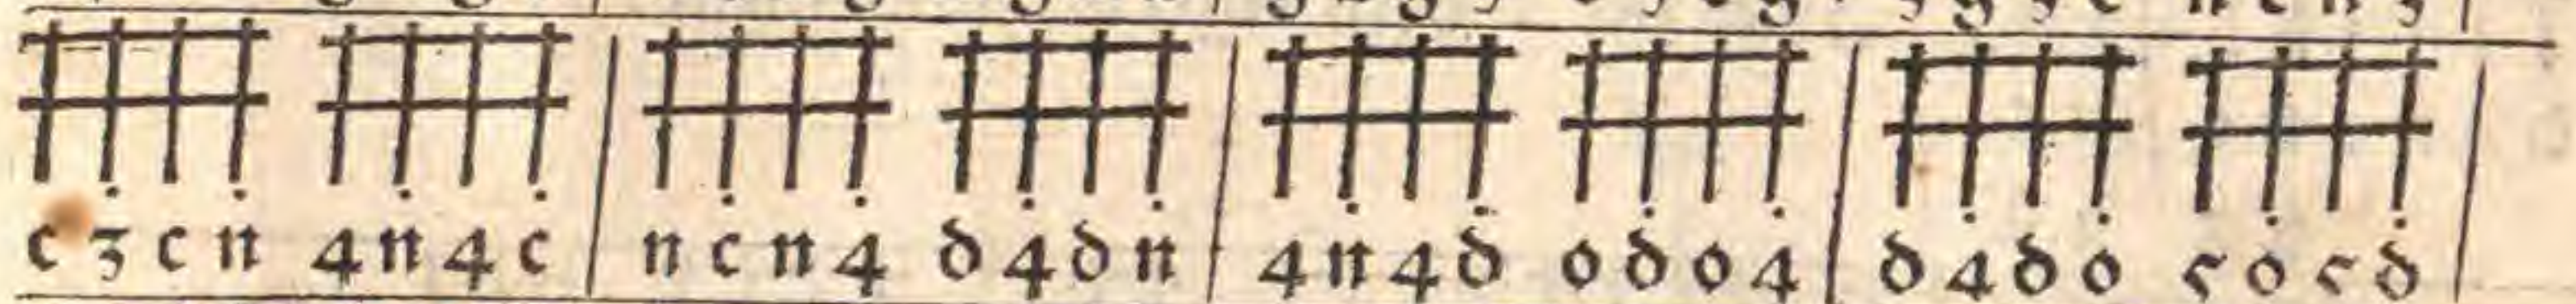 c 3 c n 4 n 4 c | n c n 4 d 4 d n | 4 n 4 d o d o 4 | d 4 d o 5 o 5 d |